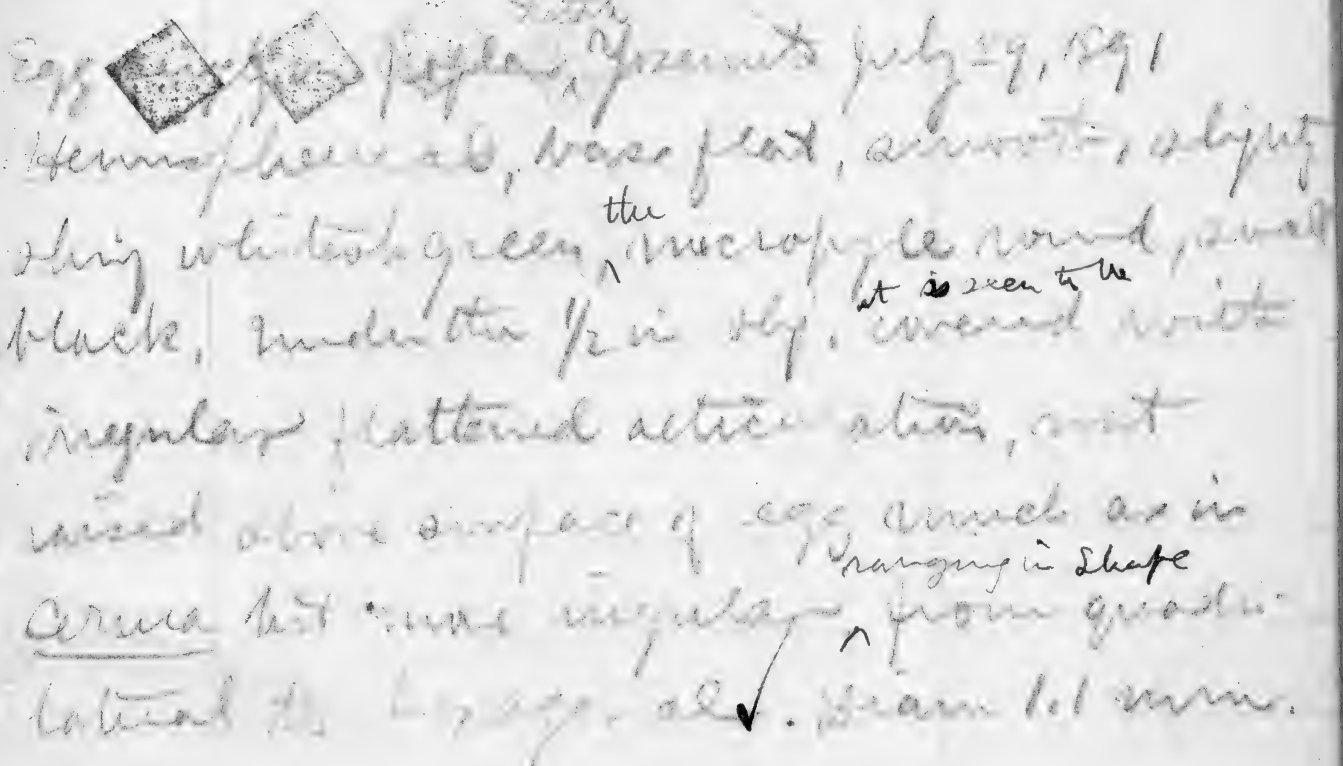 Egg poplar, Yosemite July 29, 1891
Hemispherical, base flat, smooth, slight
shiny whitish green, the micropyle round, small
black. Under the 1/2 in obj. it is seen to be covered with
irregular flattened reticulation, not
raised above surface of egg much as in
Cerura but more irregular ranging in shape from quadri-
lateral to hexagonal. Diam 1.1 mm.